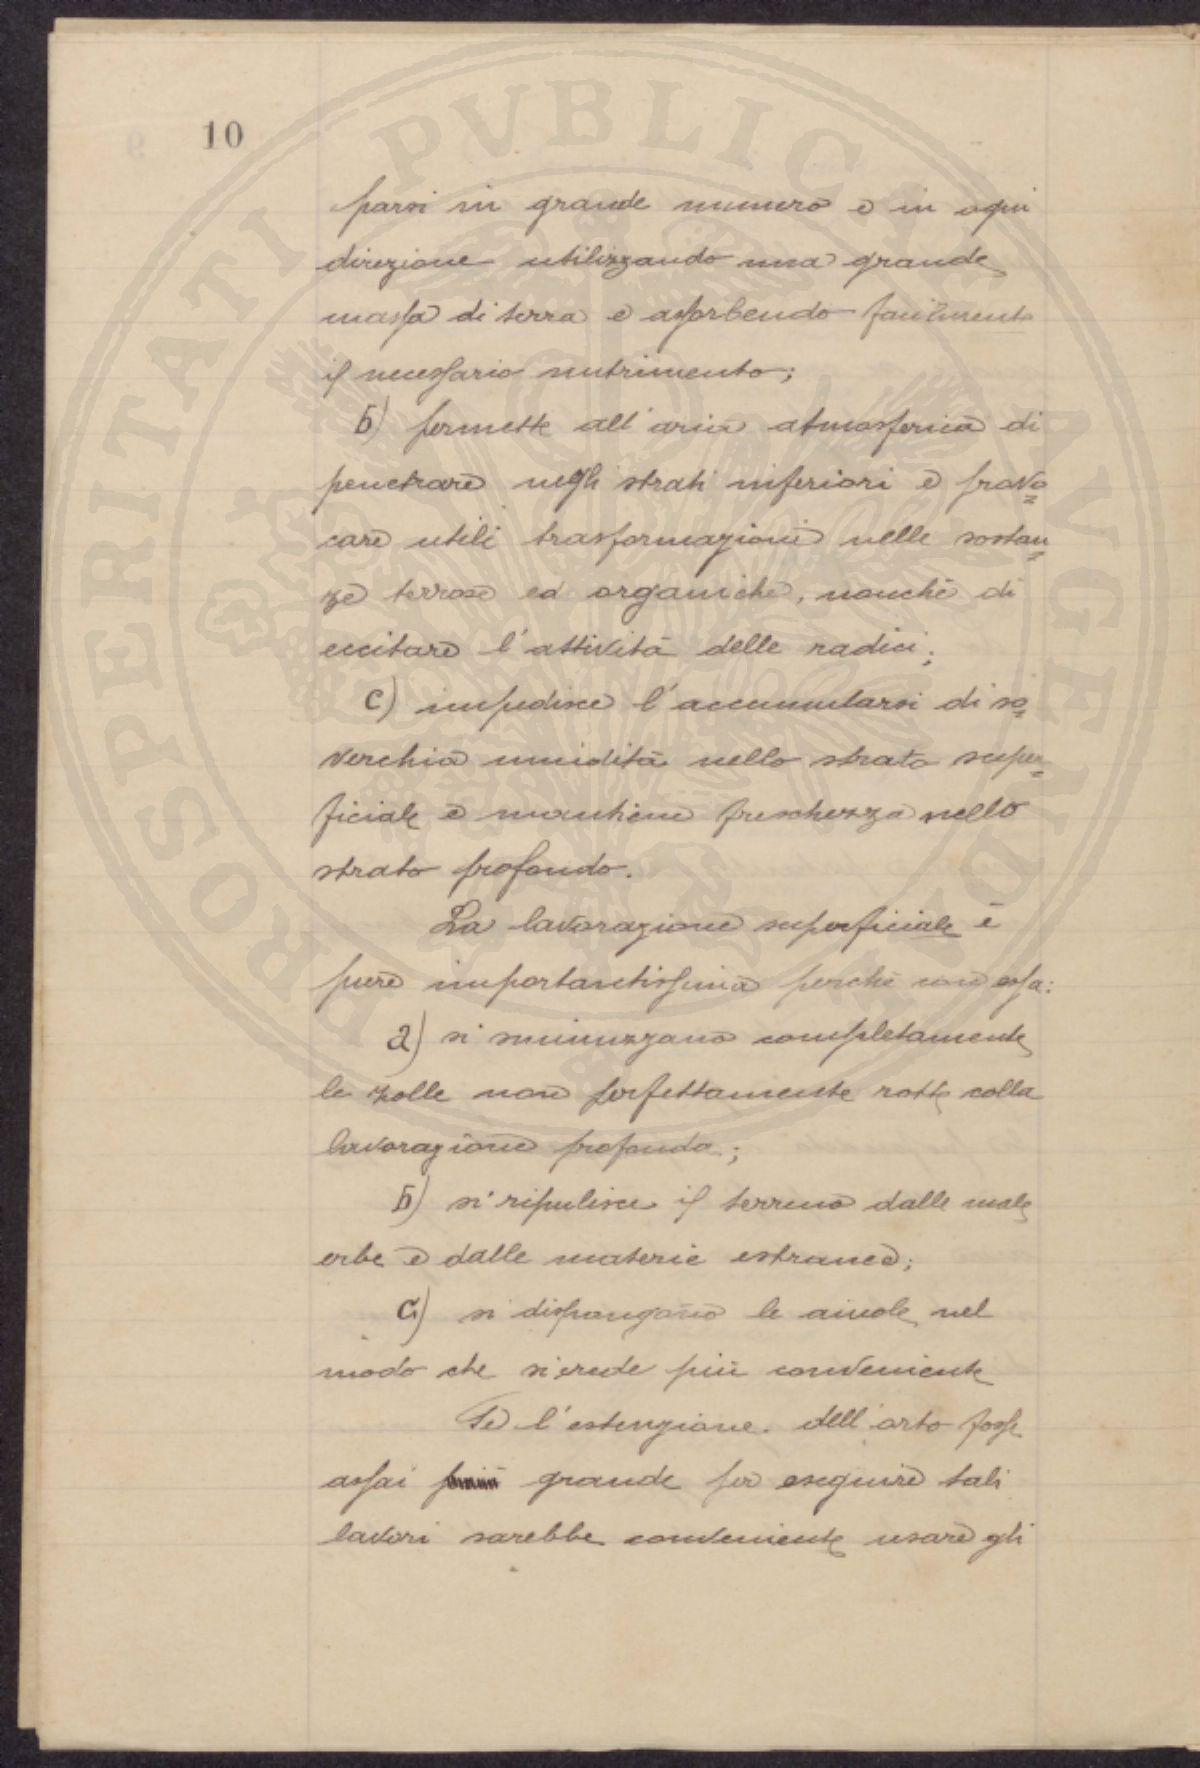 10
parsi in grande numero e in ogni
direzione utilizzando una grande
massa di terra e assorbendo facilmente
il necessario nutrimento;
b) permette all'aria atmosferica di
penetrare negli strati inferiori e provo=
care utili trasformazioni nelle sostan=
ze terrose ed organiche, nonchè di
eccitare l'attività delle radici;
c) impedisce l'accumularsi di so=
verchia umidità nello strato super=
ficiale e mantiene freschezza nello
strato profondo.
La lavorazione superficiale è
pure importantissima perchè con essa:
a) si sminuzzano completamente
le zolle non perfettamente rotte colla
lavorazione profonda;
b) si ripulisce il terreno dalle male
erbe e dalle materie estranee;
c) si dispongano le aiuole nel
modo che si crede più conveniente
Se l'estenzione. dell'orto fosse
assai grande per eseguire tali
lavori sarebbe conveniente usare gli
PROSPERITATI PVBLICAE AVGENDAE